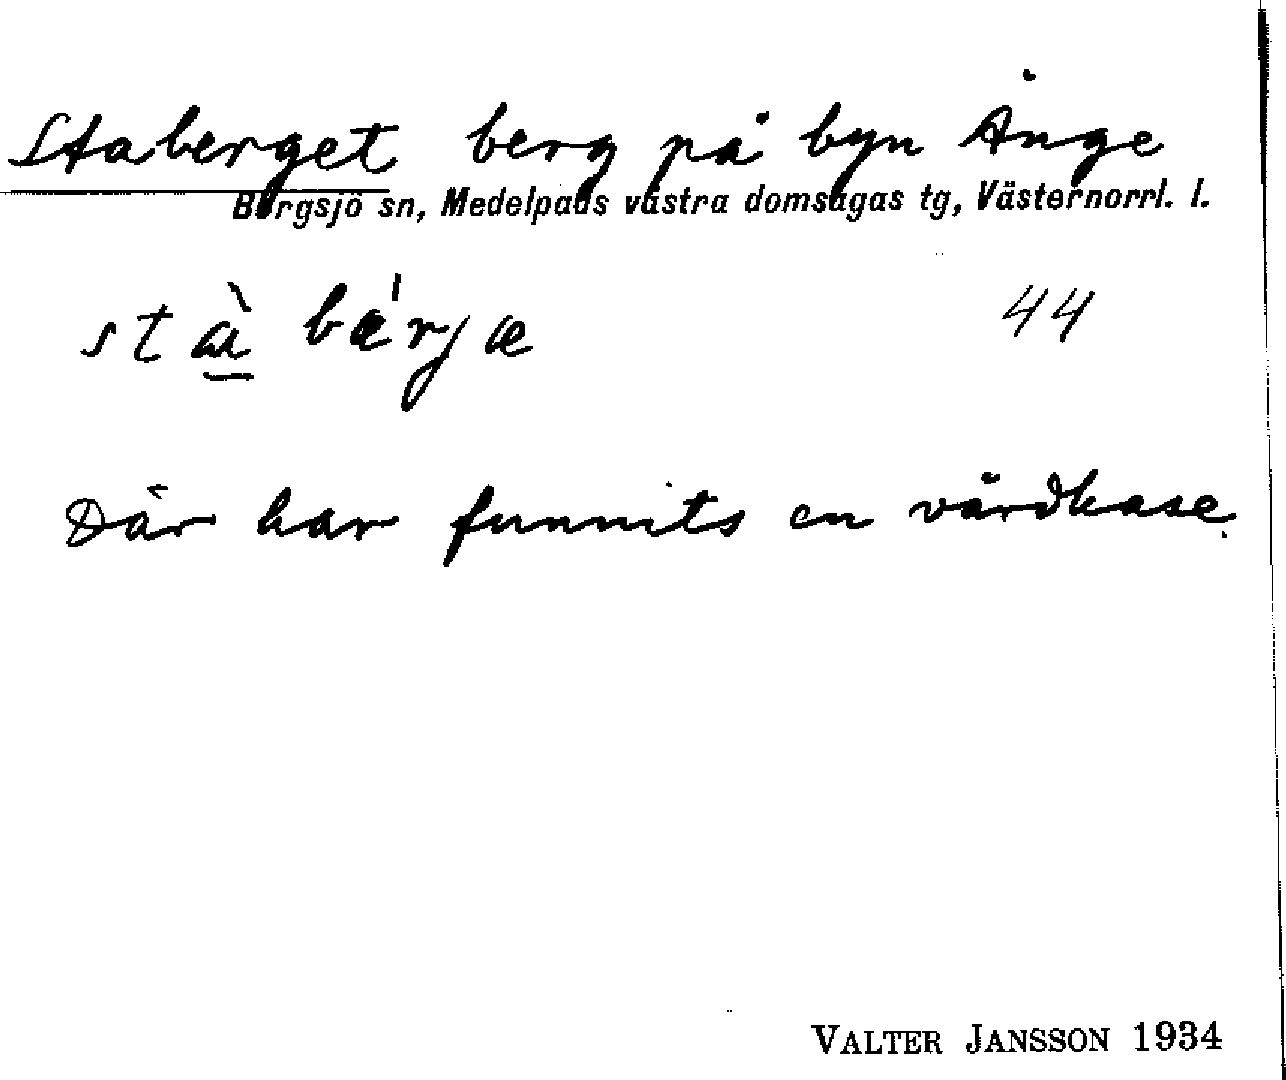 Staberget berg på byn Ånge
Borgsjö sn, Medelpads västra domsagas tg, Västernorrl. l.
stà bǽrjæ 44
Där har funnits en vårdkase.
VALTER JANSSON 1934